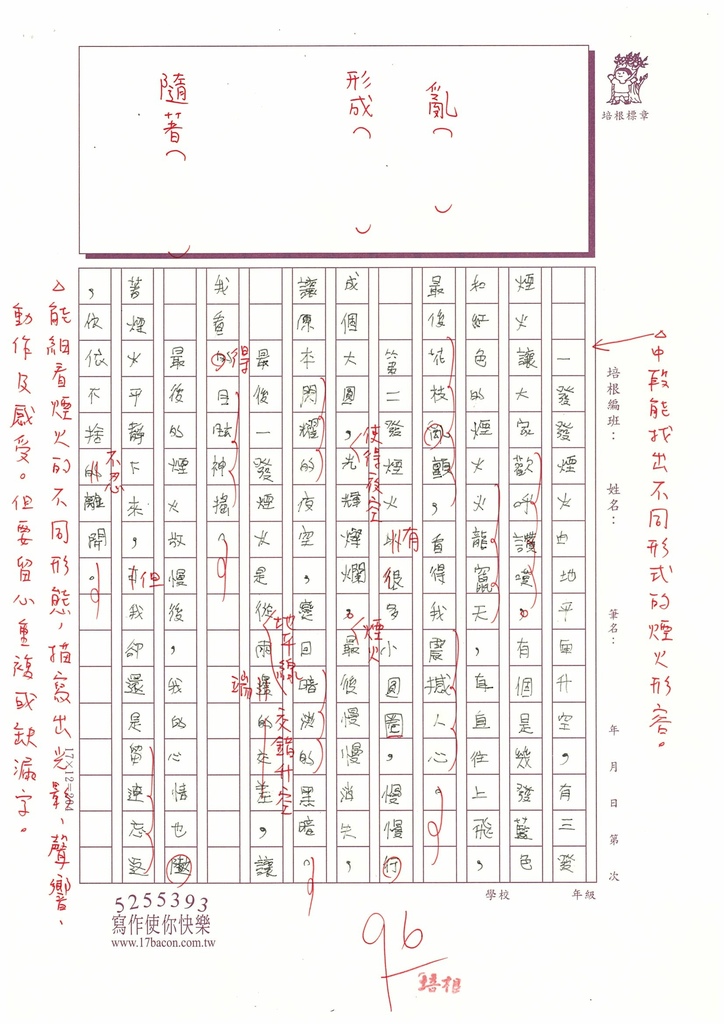 亂( )
形成( )
隨著( )
培根標章
培根編班：
姓名：
筆名：
年 月 日 第 次
△中段能找出不同形式的煙火形容。
一發發煙火由地平面升空，有三發
煙火讓大家歡呼讚嘆。有個是幾發藍色
和紅色的煙火，火龍竄天，直直往上飛，
最後花枝亂顫，看得我震撼人心。
第二發煙火 有很多小圓圈，慢慢行
成個大圓，光輝燦爛。最後慢慢消失，
讓原本閃耀的夜空，變回暗淡的黑暗。
最後一發煙火是從兩邊的交差，讓
我看的目眩神搖。
最後的煙火放慢後，我的心情也
著煙火平靜下來，我卻還是留連忘返
，依依不捨的離開。
使得夜空
有
煙火
地平線
交錯升空
端
得
但
不忍
△能細看煙火的不同形態，描寫出光影、聲響、
動作及感受。但要留心重複或缺漏字。
17×12=204
學校
年級
5255393
寫作使你快樂
www.17bacon.com.tw
96
培根